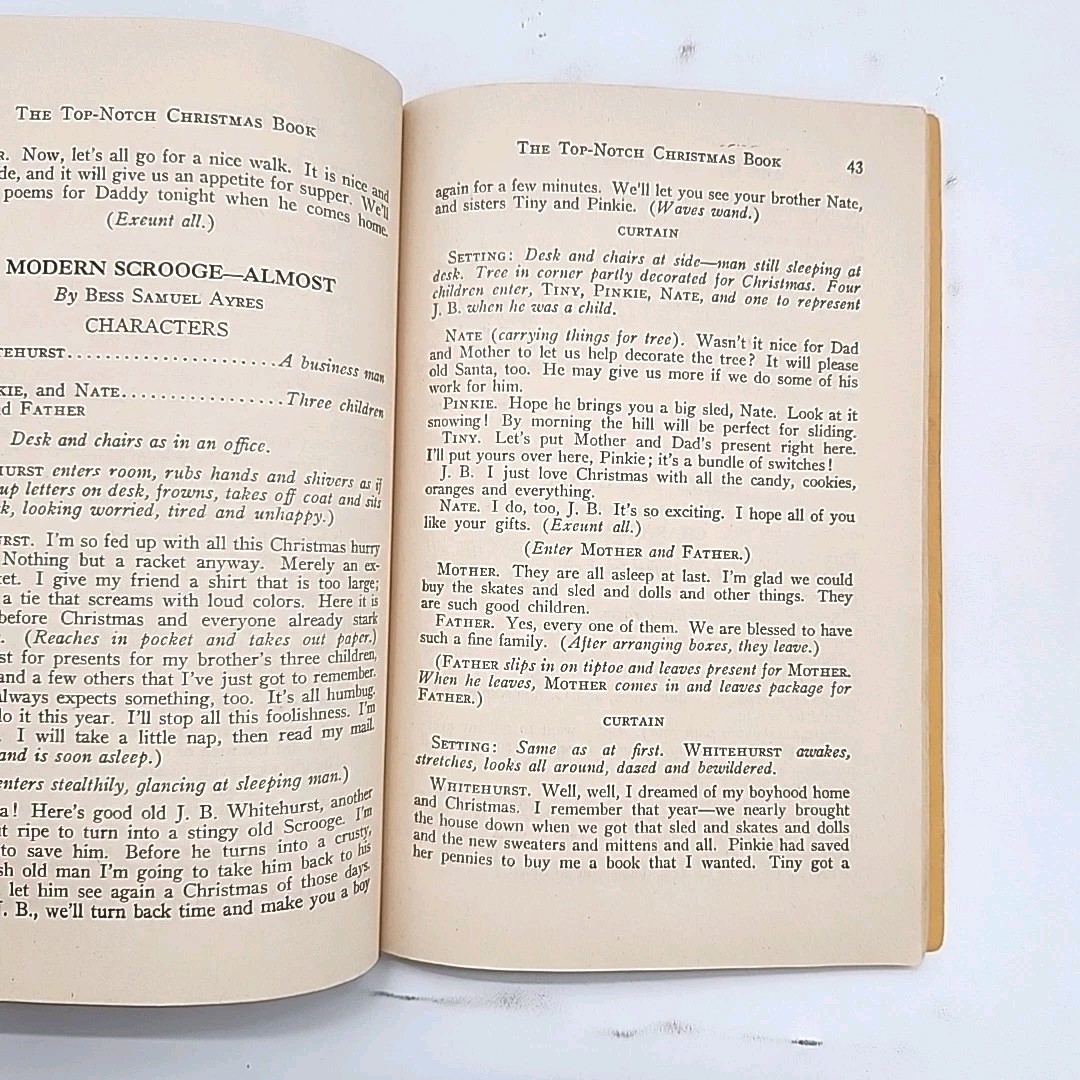 THE TOP-NOTCH CHRISTMAS BOOK
R. Now, let's all go for a nice walk. It is nice and
de, and it will give us an appetite for supper. We'll
poems for Daddy tonight when he comes home.
(Exeunt all.)
MODERN SCROOGE—ALMOST
By BESS SAMUEL AYRES
CHARACTERS
TEHURST......................A business man
KIE, and NATE.................Three children
d FATHER
Desk and chairs as in an office.
HURST enters room, rubs hands and shivers as if
up letters on desk, frowns, takes off coat and sits
k, looking worried, tired and unhappy.)
RST. I'm so fed up with all this Christmas hurry
Nothing but a racket anyway. Merely an ex-
et. I give my friend a shirt that is too large;
a tie that screams with loud colors. Here it is
before Christmas and everyone already stark
. (Reaches in pocket and takes out paper.)
st for presents for my brother's three children,
and a few others that I've just got to remember.
lways expects something, too. It's all humbug.
o it this year. I'll stop all this foolishness. I'm
. I will take a little nap, then read my mail.
and is soon asleep.)
enters stealthily, glancing at sleeping man.)
a! Here's good old J. B. Whitehurst, another
t ripe to turn into a stingy old Scrooge. I'm
to save him. Before he turns into a crusty,
sh old man I'm going to take him back to his
let him see again a Christmas of those days.
J. B., we'll turn back time and make you a boy
THE TOP-NOTCH CHRISTMAS BOOK 43
again for a few minutes. We'll let you see your brother Nate,
and sisters Tiny and Pinkie. (Waves wand.)
CURTAIN
SETTING: Desk and chairs at side—man still sleeping at
desk. Tree in corner partly decorated for Christmas. Four
children enter, TINY, PINKIE, NATE, and one to represent
J. B. when he was a child.
NATE (carrying things for tree). Wasn't it nice for Dad
and Mother to let us help decorate the tree? It will please
old Santa, too. He may give us more if we do some of his
work for him.
PINKIE. Hope he brings you a big sled, Nate. Look at it
snowing! By morning the hill will be perfect for sliding.
TINY. Let's put Mother and Dad's present right here.
I'll put yours over here, Pinkie; it's a bundle of switches!
J. B. I just love Christmas with all the candy, cookies,
oranges and everything.
NATE. I do, too, J. B. It's so exciting. I hope all of you
like your gifts. (Exeunt all.)
(Enter MOTHER and FATHER.)
MOTHER. They are all asleep at last. I'm glad we could
buy the skates and sled and dolls and other things. They
are such good children.
FATHER. Yes, every one of them. We are blessed to have
such a fine family. (After arranging boxes, they leave.)
(FATHER slips in on tiptoe and leaves present for MOTHER.
When he leaves, MOTHER comes in and leaves package for
FATHER.)
CURTAIN
SETTING: Same as at first. WHITEHURST awakes,
stretches, looks all around, dazed and bewildered.
WHITEHURST. Well, well, I dreamed of my boyhood home
and Christmas. I remember that year—we nearly brought
the house down when we got that sled and skates and dolls
and the new sweaters and mittens and all. Pinkie had saved
her pennies to buy me a book that I wanted. Tiny got a